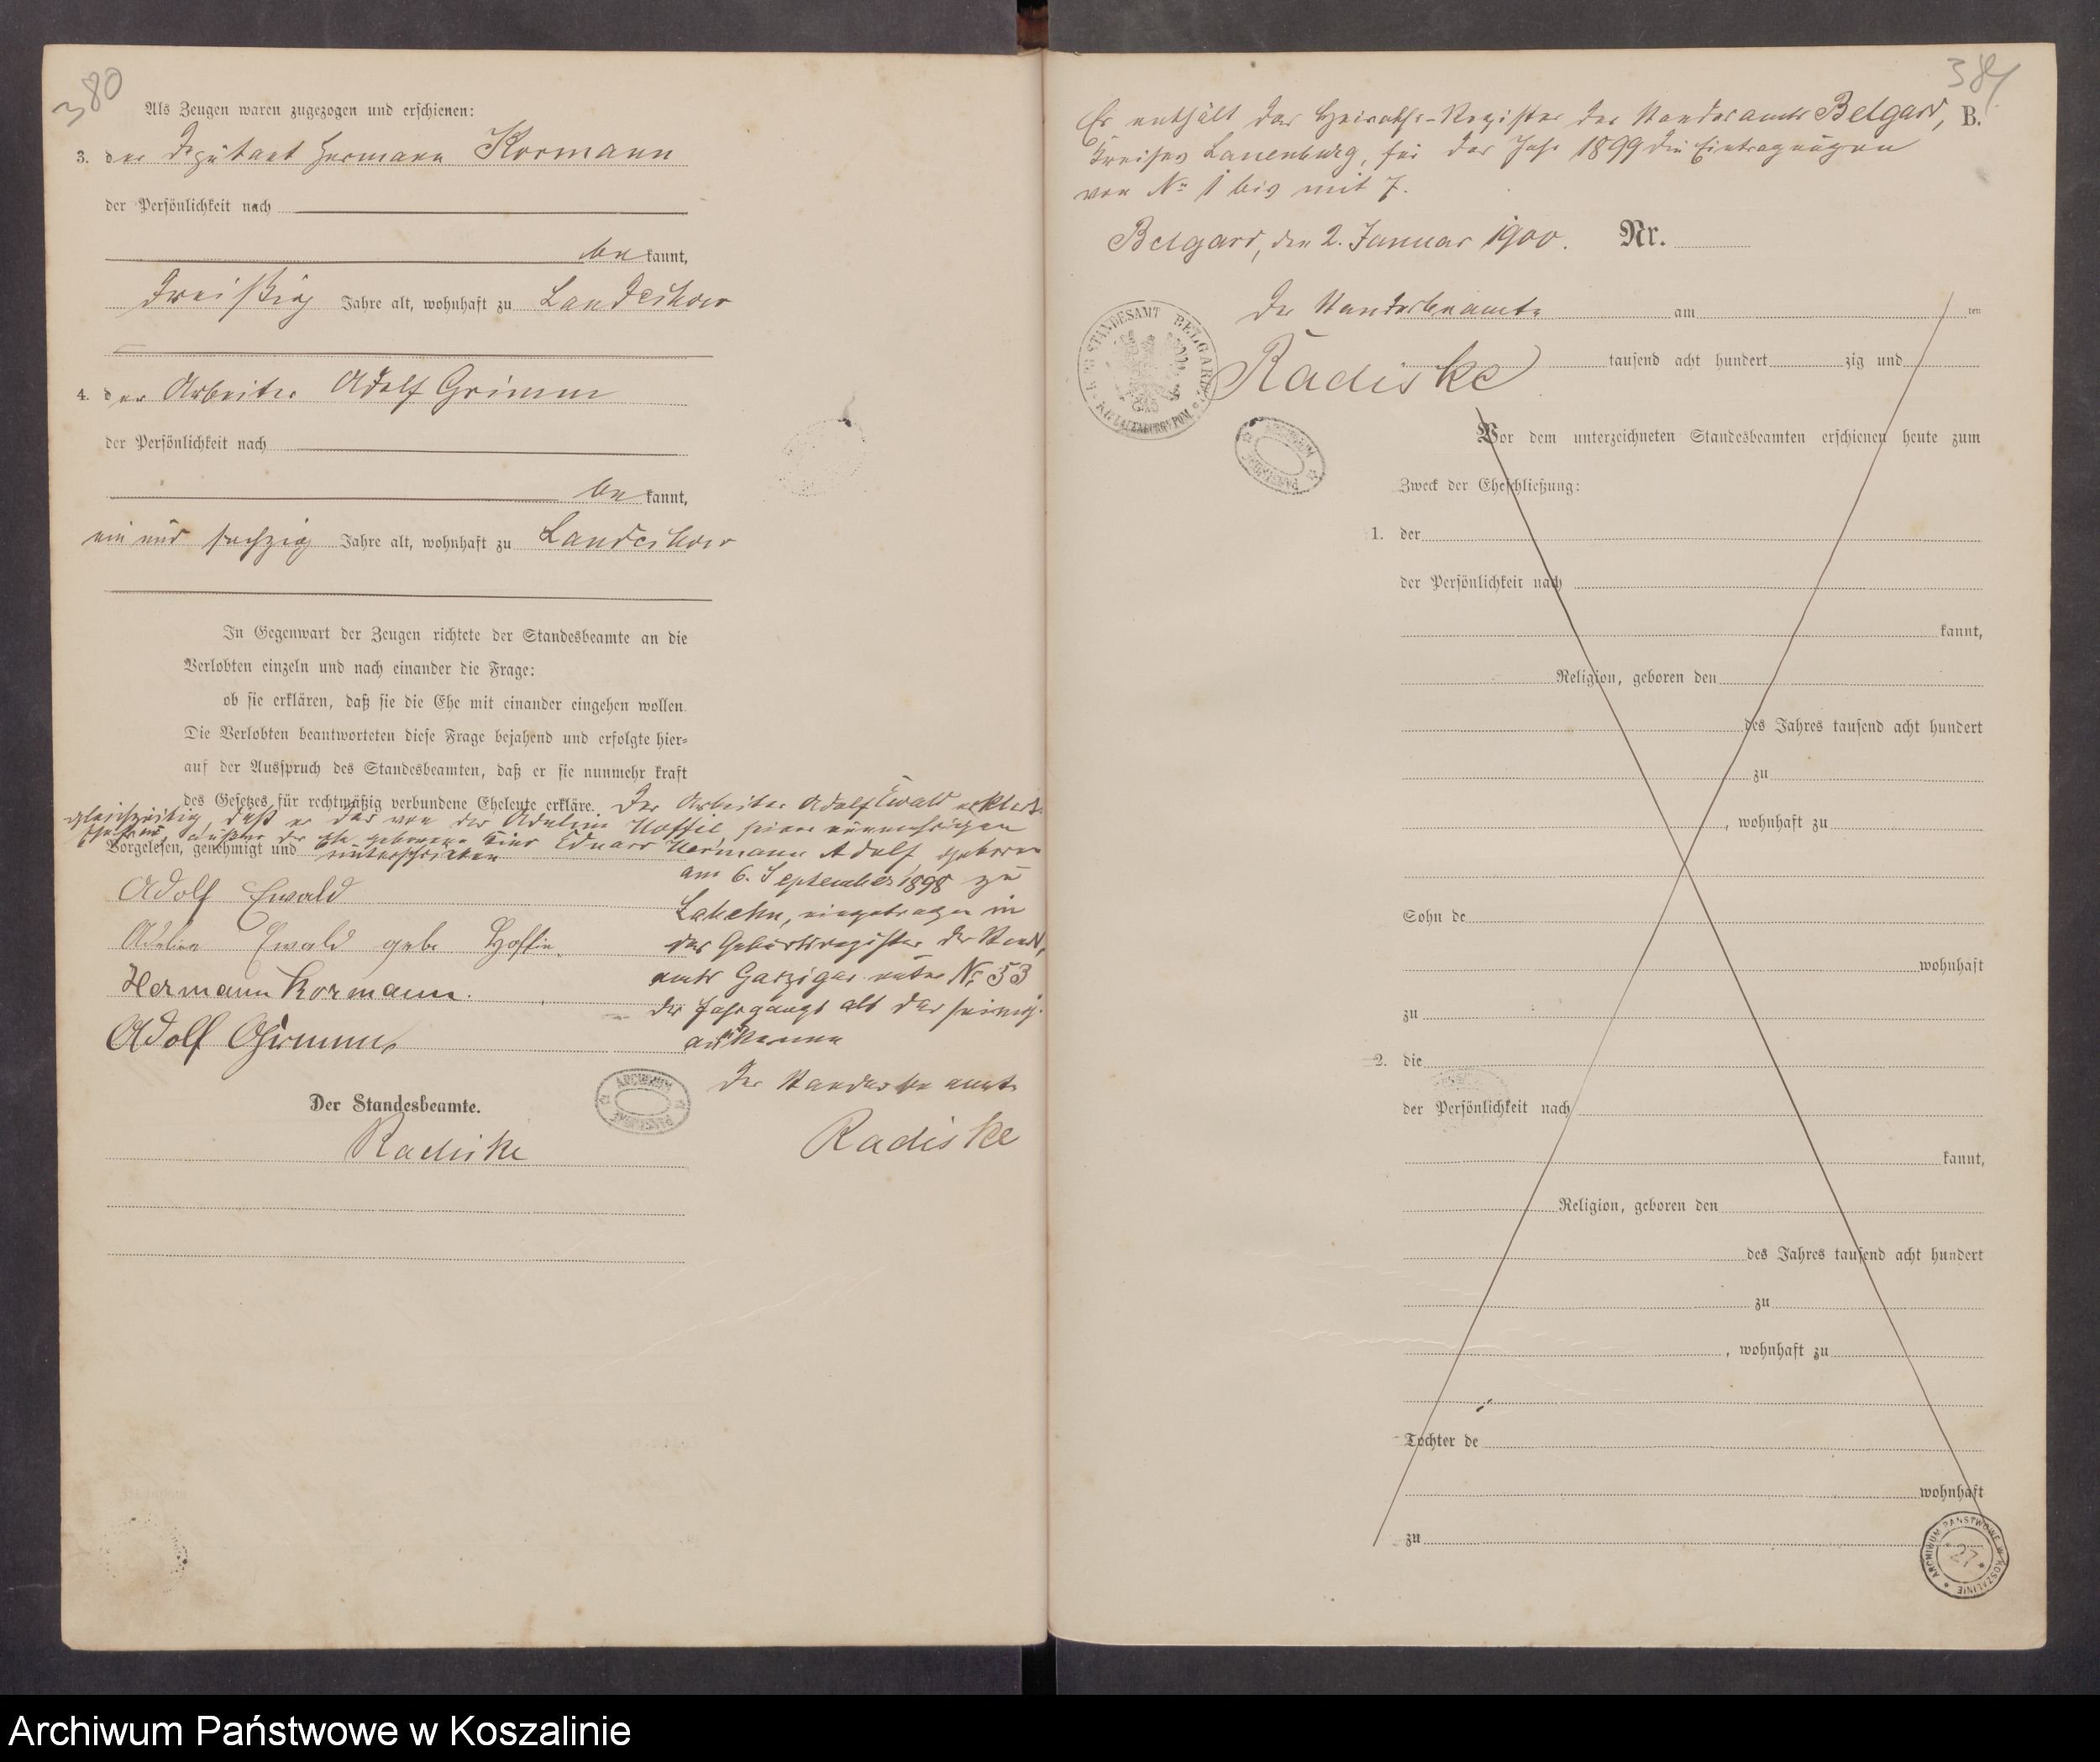 380
Als Zeugen waren zugezogen und erschienen:
3. der Deputant Hermann Kormann
der Persönlichkeit nach
be kannt,
dreißig Jahre alt, wohnhaft zu Landechow
4. der Arbeiter Adolf Grimm
der Persönlichkeit nach
be kannt,
ein und sechzig Jahre alt, wohnhaft zu Landechow
In Gegenwart der Zeugen richtete der Standesbeamte an die
Verlobten einzeln und nach einander die Frage:
ob sie erklären, daß sie die Ehe mit einander eingehen wollen.
Die Verlobten beantworteten diese Frage bejahend und erfolgte hier-
auf der Ausspruch des Standesbeamten, daß er sie nunmehr kraft
des Gesetzes für rechtmäßig verbundene Eheleute erkläre. Der Arbeiter Adolf Ewald erklärt
gleichzeitig, daß er das von der Adeline Hoffie, seiner nunmehrigen
Ehefrau, außer der Ehe geborene Kind Eduard Hermann Adolf, geboren
Vorgelesen, genehmigt und unterschrieben
am 6. September 1898 zu
Labehn, eingetragen in
das Geburtsregister des Stand.
amts Garzigar unter Nr 53
des Jahrgangs als das seinige
anerkenne
Adolf Ewald
Adeline Ewald geb. Hoffie.
Hermann Kormann.
Adolf Grimm
Der Standesbeamte.
Radiske
Der Standesbeamte
Radiske
ARCHIWUM
PAŃSTWOWE
381
B.
Es enthält das Heiraths-Register des Standesamts Belgard,
Kreises Lauenburg, für das Jahr 1899 die Eintragungen
von No 1 bis mit 7.
Belgard, den 2. Januar 1900.
Nr.
Der Standesbeamte
Radiske
STANDESAMT BELGARD
KR. LAUENBURG I/POM.
am ten
tausend acht hundert zig und
ARCHIWUM
PAŃSTWOWE
Vor dem unterzeichneten Standesbeamten erschienen heute zum
Zweck der Eheschließung:
1. der
der Persönlichkeit nach
kannt,
Religion, geboren den
des Jahres tausend acht hundert
zu
, wohnhaft zu
Sohn de
wohnhaft
zu
2. die
der Persönlichkeit nach
kannt,
Religion, geboren den
des Jahres tausend acht hundert
zu
, wohnhaft zu
Tochter de
wohnhaft
zu
ARCHIWUM PAŃSTWOWE W KOSZALINIE
27
Archiwum Państwowe w Koszalinie